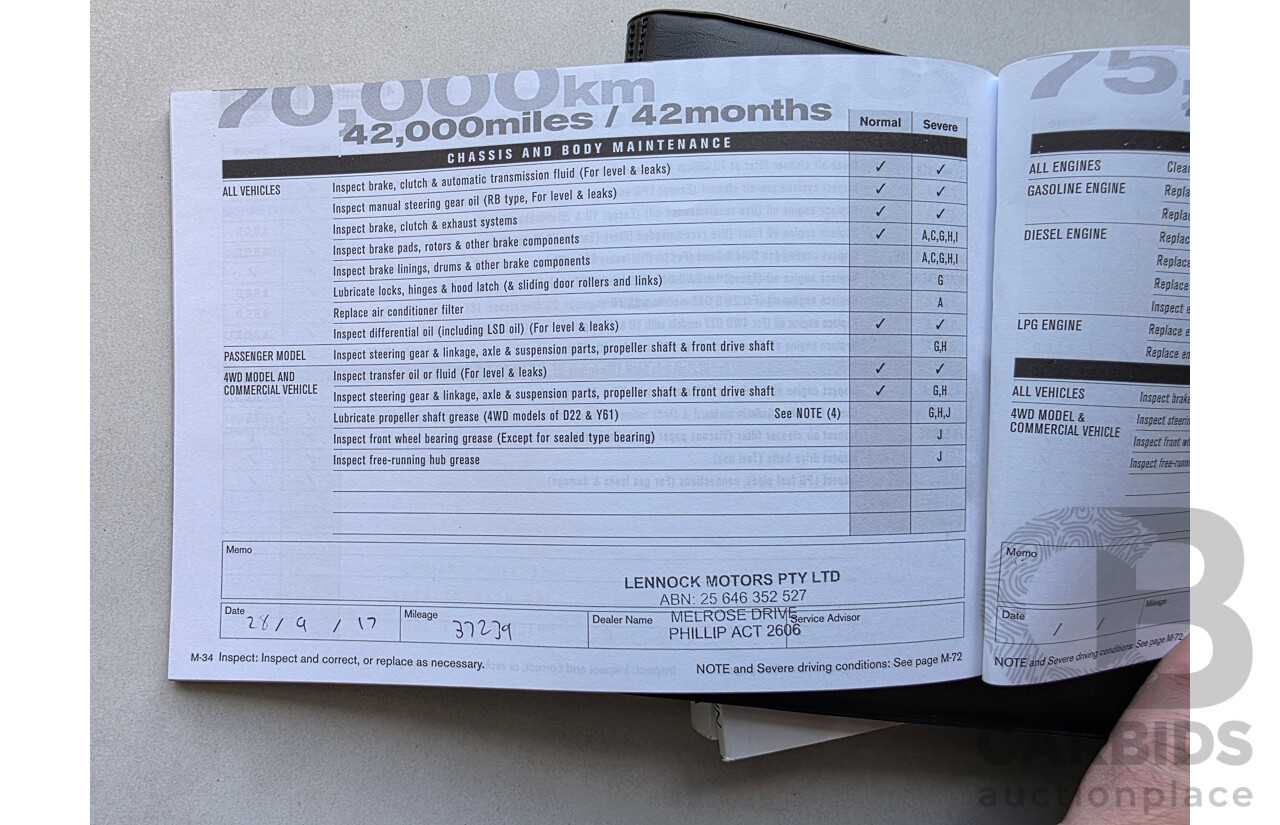 70,000km
42,000miles / 42months
Normal Severe
CHASSIS AND BODY MAINTENANCE
ALL VEHICLES Inspect brake, clutch & automatic transmission fluid (For level & leaks) ✓ ✓
Inspect manual steering gear oil (RB type, For level & leaks) ✓ ✓
Inspect brake, clutch & exhaust systems ✓ ✓
Inspect brake pads, rotors & other brake components ✓ A,C,G,H,I
Inspect brake linings, drums & other brake components A,C,G,H,I
Lubricate locks, hinges & hood latch (& sliding door rollers and links) G
Replace air conditioner filter A
Inspect differential oil (including LSD oil) (For level & leaks) ✓ ✓
PASSENGER MODEL Inspect steering gear & linkage, axle & suspension parts, propeller shaft & front drive shaft G,H
4WD MODEL AND Inspect transfer oil or fluid (For level & leaks) ✓ ✓
COMMERCIAL VEHICLE Inspect steering gear & linkage, axle & suspension parts, propeller shaft & front drive shaft ✓ G,H
Lubricate propeller shaft grease (4WD models of D22 & Y61) See NOTE (4) G,H,J
Inspect front wheel bearing grease (Except for sealed type bearing) J
Inspect free-running hub grease J
Memo
LENNOCK MOTORS PTY LTD
ABN: 25 646 352 527
MELROSE DRIVE
PHILLIP ACT 2606
Date 28/ 9 / 17 Mileage 37239 Dealer Name Service Advisor
M-34 Inspect: Inspect and correct, or replace as necessary. NOTE and Severe driving conditions: See page M-72
75,
ALL ENGINES Clea
GASOLINE ENGINE Repla
Repla
DIESEL ENGINE Replac
Replac
Replace
Inspect e
LPG ENGINE Replace e
Replace en
ALL VEHICLES Inspect brake
4WD MODEL & Inspect steerin
COMMERCIAL VEHICLE Inspect front wh
Inspect free-runn
Memo
Date / / Mileage
NOTE and Severe driving conditions: See page M-72
CARBIDS
auctionplace